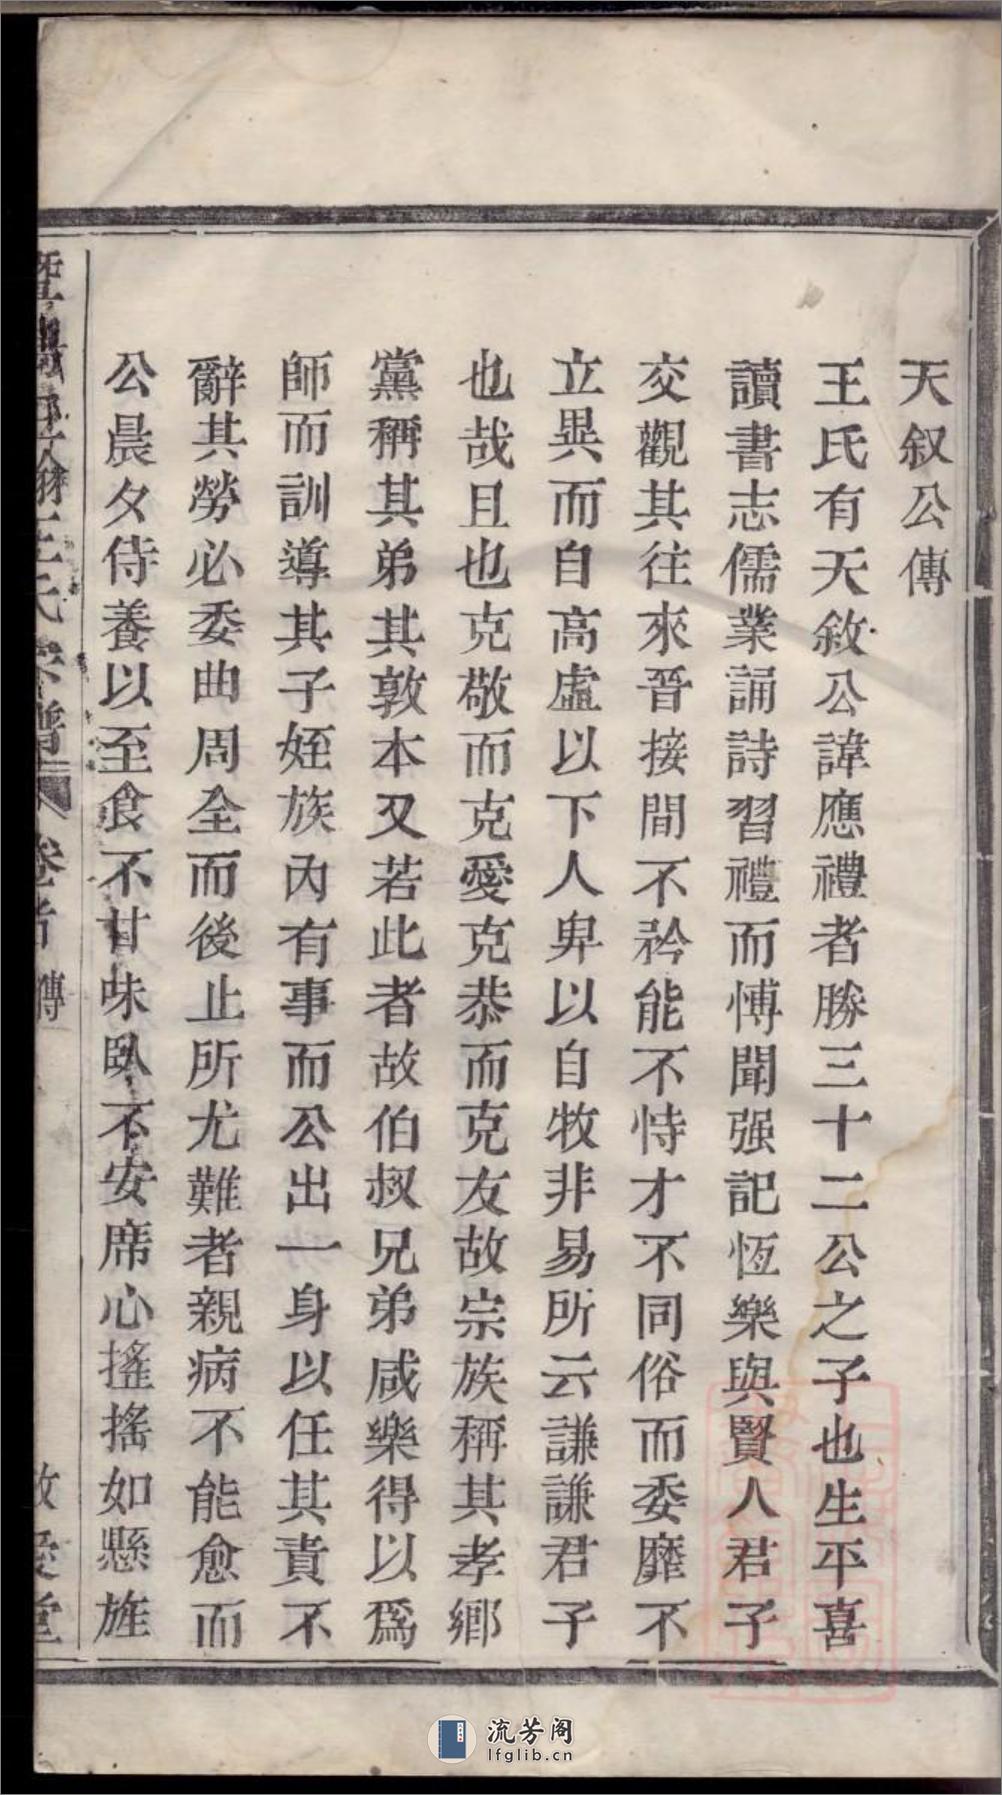 天叙公傳
王氏有天敘公諱應禮者勝三十二公之子也生平喜
讀書志儒業誦詩習禮而博聞强記恆樂與賢人君子
交觀其往來晉接間不矜能不恃才不同俗而委靡不
立異而自高虛以下人卑以自牧非易所云謙謙君子
也哉且也克敬而克愛克恭而克友故宗族稱其孝鄉
黨稱其弟其敦本又若此者故伯叔兄弟咸樂得以爲
師而訓導其子姪族內有事而公出一身以任其責不
辭其勞必委曲周全而後止所尤難者親病不能愈而
公晨夕侍養以至食不甘味臥不安席心搖搖如懸旌
王氏宗譜 卷首 傳
流芳阁
lfglib.cn